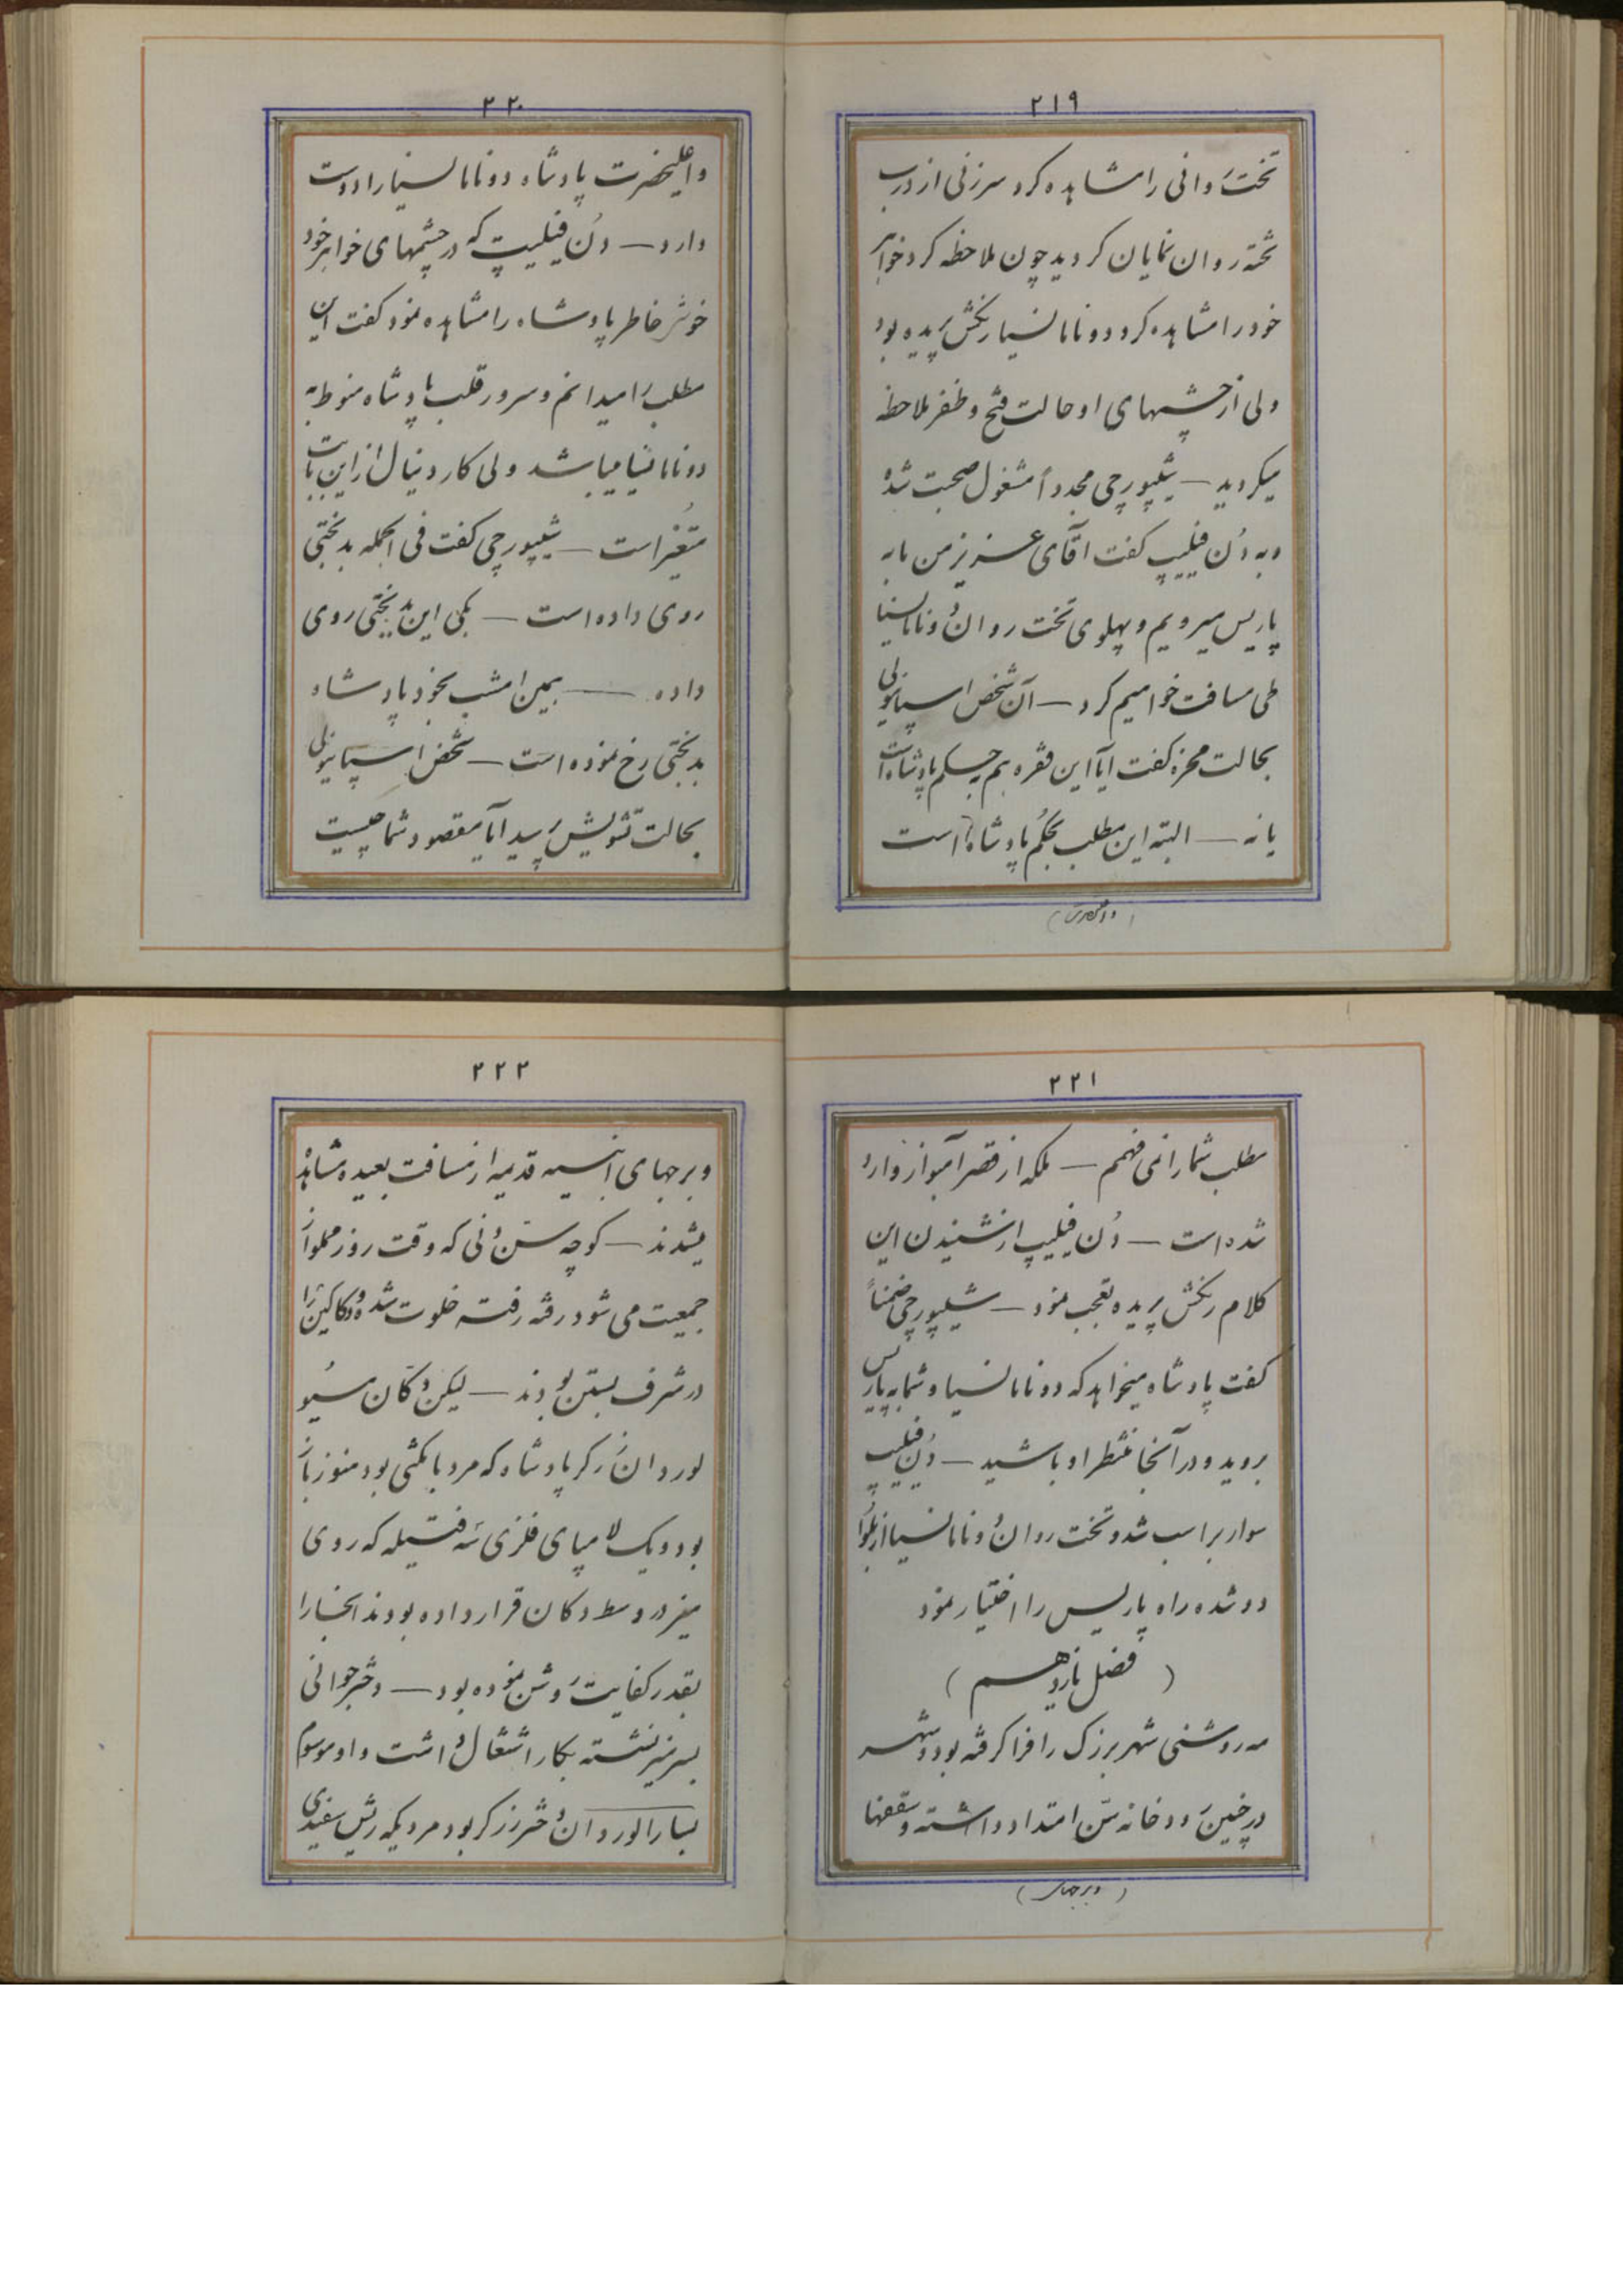 ۲۱۹
تخت روانی را مشاهده کرد سر زنی از درب
تخته روان نمایان کردید چون ملاحظه کرد خواهر
خود را مشاهده کرد دونا مانسیا رنگش پریده بود
ولی از چشمهای او حالت فتح و ظفر ملاحظه
میکردید — شیپورچی مجدداً مشغول صحبت شده
و به دُن فیلیپ کفت اقای عزیز من ما به
پاریس میرویم و پهلوی تخت روان دونا مانسیا
طی مسافت خواهیم کرد — آن شخص اسپانیولی
بحالت محزنه کفت آیا این فقره هم بحکم پادشاه است
یا نه — البته این مطلب بحکم پادشاه است
(واعلیحضرت)
۲۲۰
واعلیحضرت پادشاه دونا مانسیا را دوست
دارد — دُن فیلیپ که در چشمهای خواهر خود
خوشی خاطر پادشاه را مشاهده نمود کفت این
مطلب را میدانم و سرور قلب پادشاه منوط به
دونا مانسیا میباشد ولی کار دنیا از این بابت
متغیر است — شیپورچی کفت فی الجمله بدبختی
روی داده است — بکی این بدبختی روی
داده — همین امشب بخود پادشاه
بدبختی رخ نموده است — شخص اسپانیولی
بحالت تشویش پرسید آیا مقصود شما چیست
۲۲۱
مطلب شما را نمی فهمم — ملکه از قصر آمبواز وارد
شده است — دُن فیلیپ از شنیدن این
کلام رنگش پریده تعجب نمود — شیپورچی ضمناً
کفت پادشاه میخواهد که دونا مانسیا و شما به پاریس
بروید و در آنجا منتظر او باشید — دُن فیلیپ
سوار بر اسب شد و تخت روان دونا مانسیا از بلوا
دور شده راه پاریس را اختیار نمود
(فصل یازدهم)
مه روشنی شهر بزرک را فرا کرفته بود و شهر
در چنین رودخانه سن امتداد داشته و سقفها
(وبرجهای)
۲۲۲
وبرجهای ابنیه قدیمه از مسافت بعیده مشاهده
میشدند — کوچه سن دُنی که وقت روز مملو از
جمعیت می شود رفته رفته خلوت شده و دکاکین را
در شرف بستن بودند — لیکن دکان مسیو
لوردان زرکر پادشاه که مرد با مکنتی بود هنوز باز
بود و یک لامپای فلزی سه فتیله که روی
میز در وسط دکان قرار داده بودند آنجا را
بقدر کفایت روشن نموده بود — دختر جوانی
بسر میز نشسته بکار اشتغال داشت و او موسوم
بسارا لوردان دختر زرکر بود مردیکه ریش سفیدی